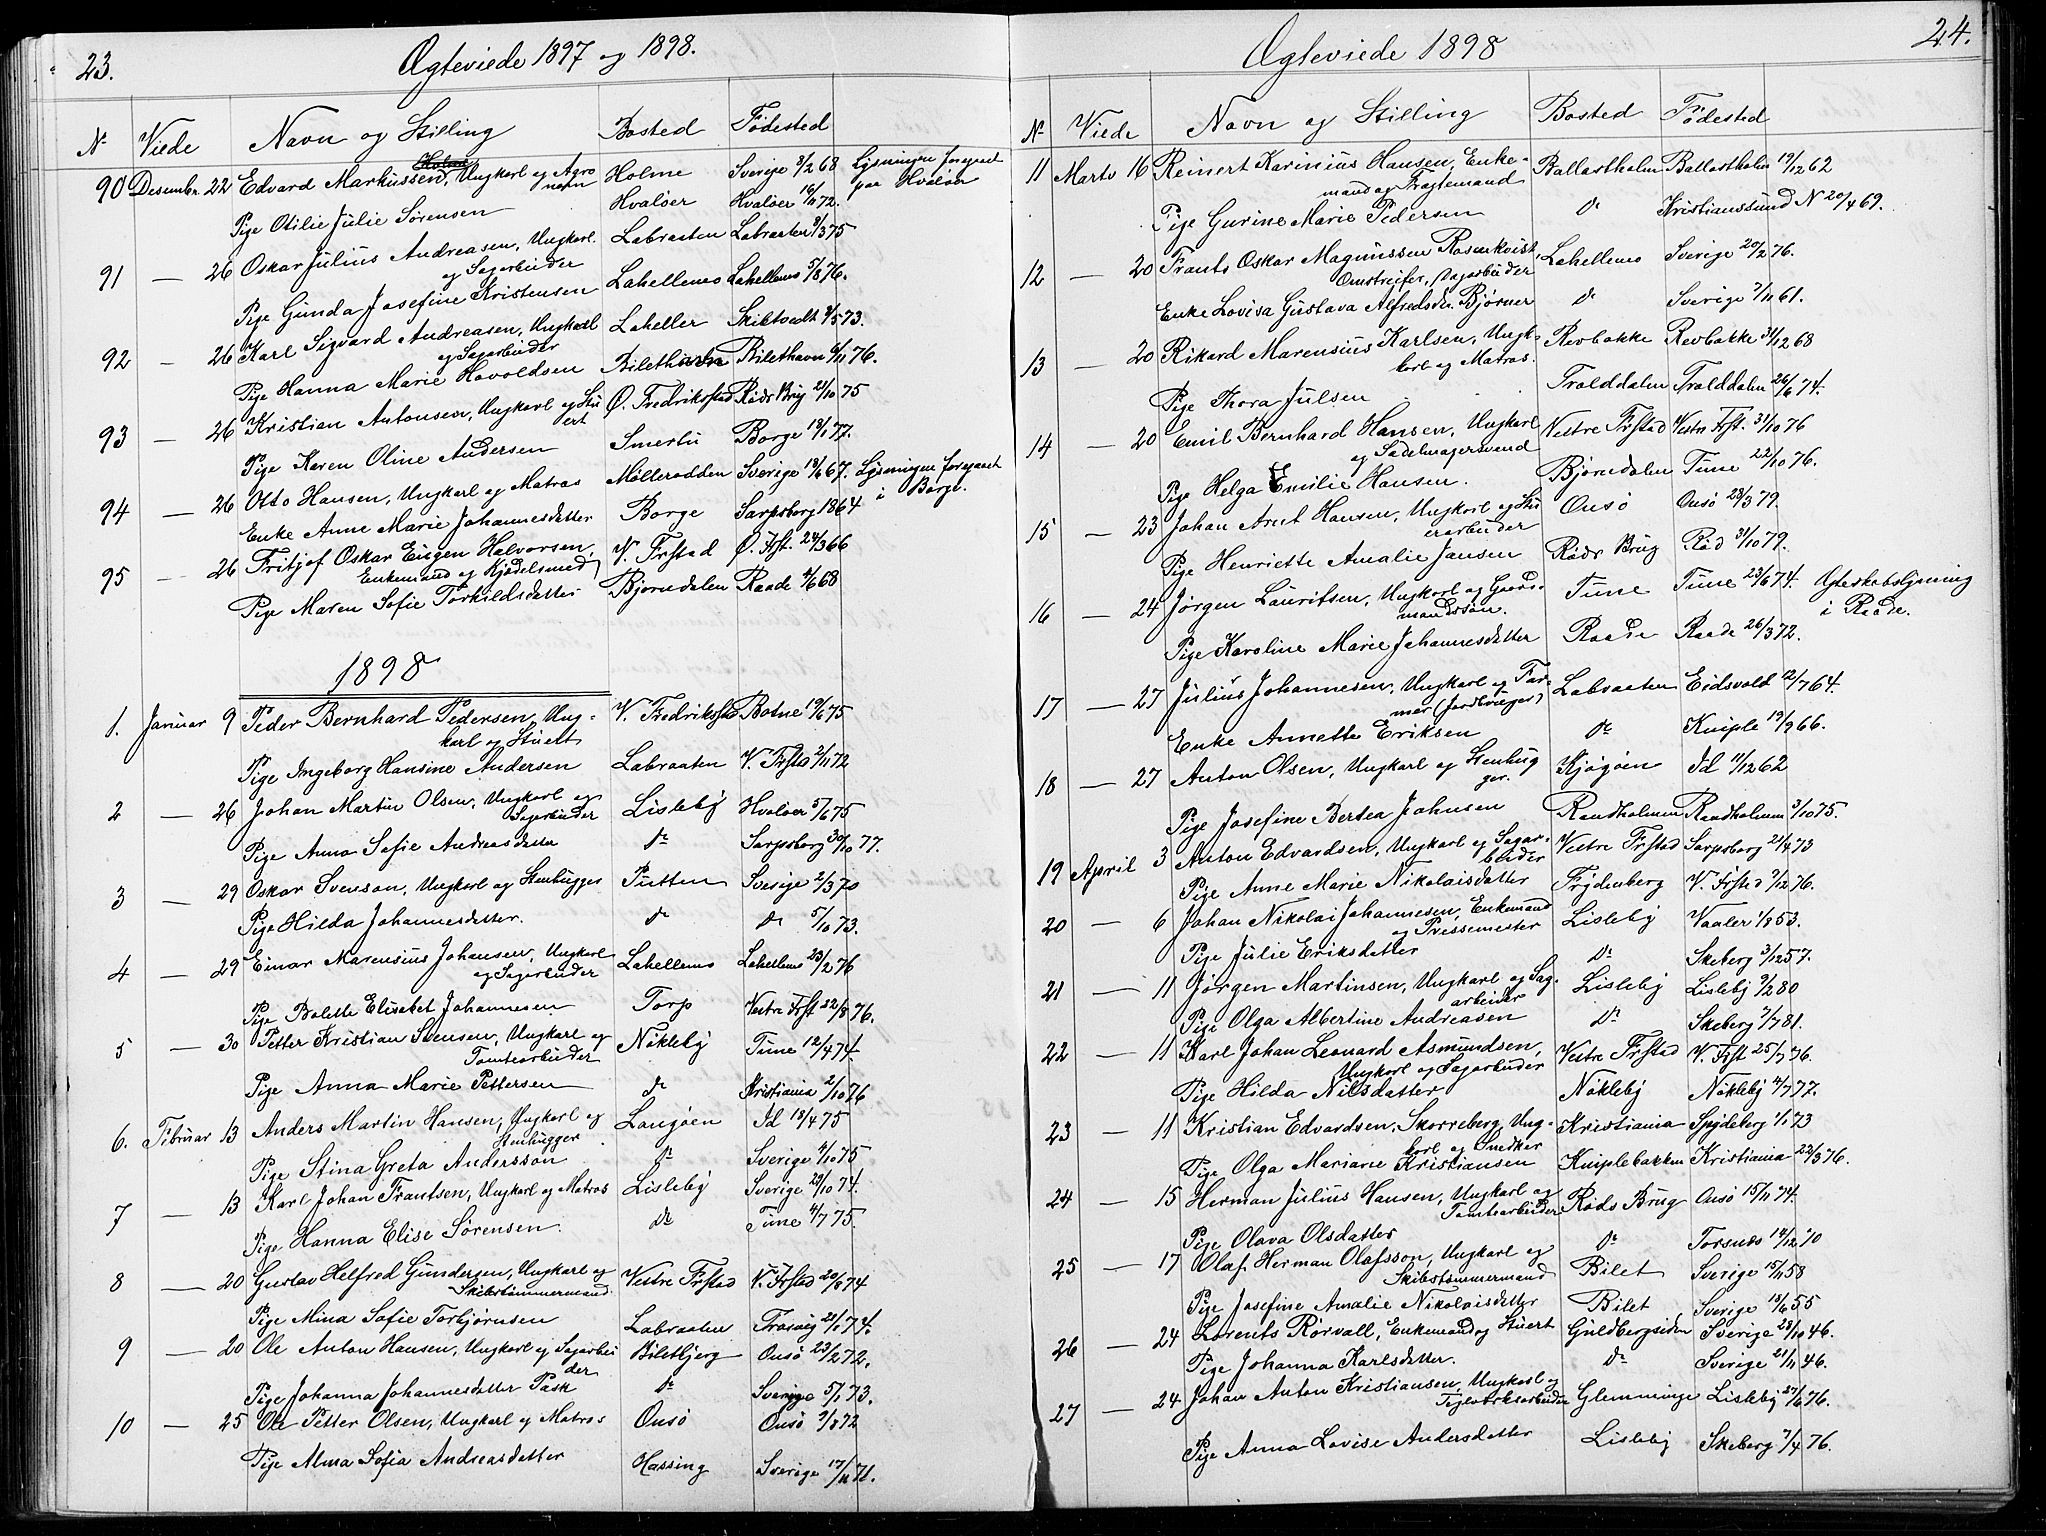 23.
Ægteviede 1897 og 1898.
N. Viede Navn og Stilling Bosted Fødested
90 Desembr. 22 Edvard Markussen, Ungkarl og Agro Holme Sverige 3/2 68 Lysningen foregaaet
Holme
nom paa Hvaløer
Pige Otilie Julie Sørensen Hvaløer Hvaløer 16/11 72.
91 — 26 Oskar Julius Andreasen, Ungkarl Labraaten Labraaten 8/3 75
og Sagarbeider
Pige Gunda Josefine Kristensen Lahellemo Lahellemo 5/8 76.
92 — 26 Karl Sigvard Andreasen, Ungkarl Laheller Skibtvedt 3/5 73.
og Sagarbeider
Pige Hanna Marie Havoldsen Bilethavn Bilethavn 6/11 76.
93 — 26 Kristian Antonsen, Ungkarl og Stu Ø. Fredrikstad Røds Brug 21/10 75
ert
Pige Karen Oline Andersen Smertu Borge 18/1 77.
94 — 26 Otto Hansen, Ungkarl og Matros Møllerodden Sverige 18/6 67. Lysningen foregaaet
i Borge.
Enke Anne Marie Johannesdatter Borge Sarpsborg 1864
95 — 26 Fritjof Oskar Eugen Halvorsen, V. Frstad Ø. Frst. 24/3 66
Enkemand og Kjedelsmed
Pige Maren Sofie Torkildsdatter Bjørndalen Raade 4/6 68
1898
1. Januar 9 Peder Bernhard Pedersen, Ung- V. Fredrikstad Botne 19/6 75
karl og Stuert
Pige Ingeborg Hansine Andersen Labraaten V. Frstad 2/11 72
2 — 26 Johan Martin Olsen, Ungkarl og Lisleby Hvaløer 5/6 75
Sagarbeider
Pige Anna Sofie Andreasdatter do Sarpsborg 30/10 77.
3 — 29 Oskar Svenson, Ungkarl og Stenhugger Putten Sverige 2/3 70
Pige Hilda Johannesdatter. do do 5/10 73.
4 — 29 Einar Marensius Johansen, Ungkarl Lahellemo Lahellemo 23/2 76
og Sagarbeider
Pige Bolette Elisabet Johannesen Torp Vestre Frst 22/8 76.
5 — 30 Petter Kristian Svensen, Ungkarl og Nikleby Tune 12/4 74.
Tomtearbeider
Pige Anna Marie Pettersen do Kristiania 2/10 76
6. Februar 13 Anders Martin Hansen, Ungkarl og Langøen Id 18/4 75
Stenhugger
Pige Stina Greta Andersson do Sverige 4/10 75
7 — 13 Karl Johan Frantsen, Ungkarl og Matros Lisleby Sverige 29/10 74.
Pige Hanna Elise Sørensen. do Tune 4/7 75.
8 — 20 Gustav Helfred Gundersen, Ungkarl og Vestre Frstad V. Frstad 20/8 74
Skibstimmermand
Pige Mina Sofie Torbjørnsen Labraaten Trosvig 21/1 74.
9 — 20 Ole Anton Hansen, Ungkarl og Sagarbei Biletbjerg Onsø 23/2 72.
der
Pige Johanna Johannesdatter Pask do Sverige 5/1 73.
10 — 25 Ole Petter Olsen, Ungkarl og Matros Onsø Onsø 9/8 72
Pige Alma Sofia Andreasdatter Hassing Sverige 17/11 71.
Ægteviede 1898
24.
N. Viede Navn og Stilling Bosted Fødested
11 Marts 16 Reinert Karinius Hansen, Enke- Ballastholm Ballastholm 19/12 62
mand og Fragtemand
Pige Gurine Marie Pedersen do Kristianssund N 20/4 69.
12 — 20 Frants Oskar Magnussen Rosenkvist, Lahellemo Sverige 20/2 76.
Omstreifer, Sagarbeider
Enke Lovisa Gustava Alfredsdr. Bjørner do Sverige 7/11 61.
13 — 20 Rikard Marensius Karlsen, Ung- Revbakke Revbakke 31/12 68
karl og Matros.
Pige Thora Julsen Trolddalen Trolddalen 26/6 74.
14 — 20 Emil Bernhard Hansen, Ungkarl Vestre Frstad Vestre Frst. 31/10 76
og Sadelmagersvend
Pige Helga Emilie Hansen. Bjørndalen Tune 22/10 76.
15 — 23 Johan Arnt Hansen, Ungkarl og Stu Onsø Onsø 28/3 79.
erarbeider
Pige Henriette Amalie Jansen Røds Brug Rød 31/10 79.
16 — 24 Jørgen Lauritsen, Ungkarl og Gaard- Tune Tune 23/6 74. Ægteskabslysning
mandssøn. i Raade.
Pige Karoline Marie Johannesdatter Raade Raade 26/3 72.
17 — 27 Julius Johannesen, Ungkarl og Far- Labraaten Eidsvold 12/7 64.
mer (Jordbruger)
Enke Annette Eriksen do Kniple 19/9 66.
18 — 27 Anton Olsen, Ungkarl og Stenhug Kjøgøen Id 11/12 62
ger.
Pige Josefine Bertea Johnsen Raudholmen Raudholmen 3/10 75.
19 April 3 Anton Edvardsen, Ungkarl og Sagar- Vestre Frstad Sarpsborg 21/4 73
beider
Pige Anne Marie Nikolaisdatter Frydenberg V. Frstad 9/12 76.
20 — 6 Johan Nikolai Johannesen, Enkemand Lisleby Vaaler 1/8 53.
og Pressemester
Pige Julie Eriksdatter do Skeberg 3/12 57.
21 — 11 Jørgen Martinsen, Ungkarl og Sag Lisleby Lisleby 9/2 80
arbeider
Pige Olga Albertine Andreasen do Skeberg 7/7 81.
22 — 11 Karl Johan Leonard Asmundsen, Vestre Frstad V. Frst 25/7 76.
Ungkarl og Sagarbeider
Pige Hilda Nilsdatter Nøkleby Nøkleby 4/7 77.
23 — 11 Kristian Edvardsen, Skorreberg, Ung- Kristiania Spydeberg 1/1 73
karl og Snedker
Pige Olga Mariane Kristiansen Kniplebakken Kristiania 22/3 76.
24 — 15 Herman Julius Hansen, Ungkarl og Røds Brug Onsø 15/11 74.
Tomtearbeider
Pige Olava Olsdatter do Torsnæs 14/12 70
25 — 17 Olaf Herman Olafsson, Ungkarl og Bilet Sverige 15/11 58
Skibstømmermand
Pige Josefine Amalie Nikolaisdatter Bilet Sverige 18/6 55
26 — 24 Lorents Rørvall, Enkemand og Stuert Guldbergsiden Sverige 28/10 46.
Pige Johanna Karlsdatter. do Sverige 21/11 46.
27 — 24 Johan Anton Kristiansen, Ungkarl og Glemminge Lisleby 27/6 76.
Teglværksarbeider
Pige Anna Lovise Andersdatter Lisleby Skeberg 7/4 76.